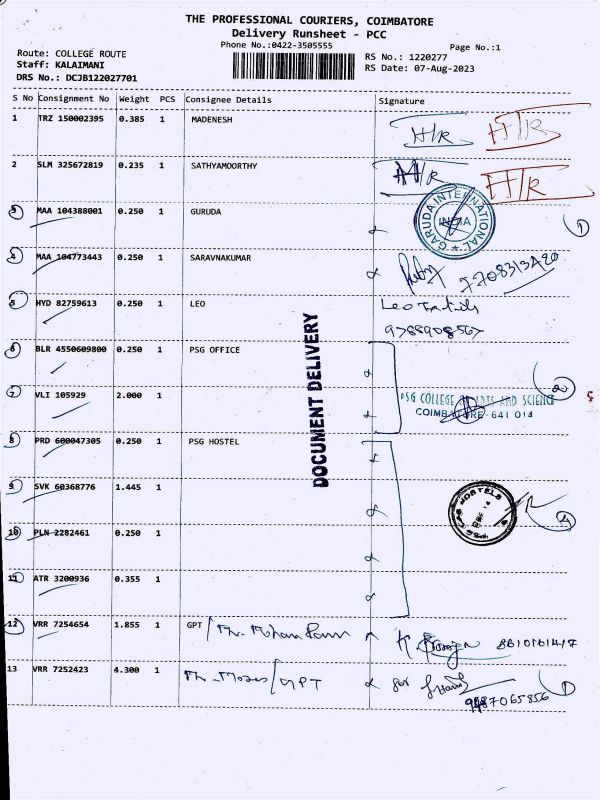 THE PROFESSIONAL COURIERS, COIMBATORE
Delivery Runsheet - PCC
Phone No.:0422-3505555
Page No.:1
Route: COLLEGE ROUTE
Staff: KALAIMANI
DRS No.: DCJB122027701
RS No.: 1220277
RS Date: 07-Aug-2023
S No Consignment No Weight PCS Consignee Details Signature
1 TRZ 150002395 0.385 1 MADENESH H/R H/R
2 SLM 325672819 0.235 1 SATHYAMOORTHY H/R H/R
3 MAA 104388001 0.250 1 GURUDA
GARUDA INTERNATIONAL
INDIA
1
4 MAA 104773443 0.250 1 SARAVNAKUMAR
5 HYD 82759613 0.250 1 LEO Leo
9788908567
6 BLR 4550609800 0.250 1 PSG OFFICE
DOCUMENT DELIVERY
7 VLI 105929 2.000 1
PSG COLLEGE OF ARTS AND SCIENCE
COIMBATORE-641 014
8 PRD 600047305 0.250 1 PSG HOSTEL
9 SVK 60368776 1.445 1
HOSTELS
4
10 PLN 2282461 0.250 1
11 ATR 3200936 0.355 1
12 VRR 7254654 1.855 1 GPT / Mr.
13 VRR 7252423 4.300 1 Mr. Moses / GPT for
9487065856
1